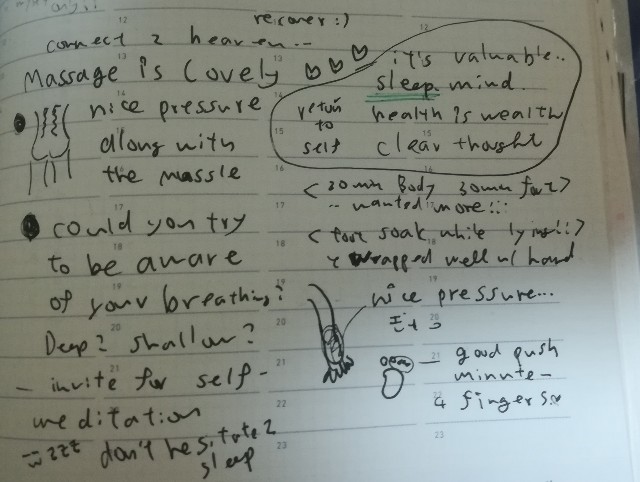 recover :)
connect 2 heaven...
Massage is Lovely ♡♡♡
nice pressure
along with
the massle
could you try
to be aware
of your breathing?
Deep? shallow?
- invite for self-
meditation
zzz don't hesitate 2
sleep
it's valuable..
sleep mind.
return
to
self
health is wealth
clear thought
<30min Body 30min foot>
.. wanted more!!!
< foot soak while lying!!>
& wrapped well w/ hand
nice pressure...
good push
minute -
4 fingers..
12
13
14
15
16
17
18
19
20
21
22
23
12
13
14
15
16
17
18
19
20
21
22
23